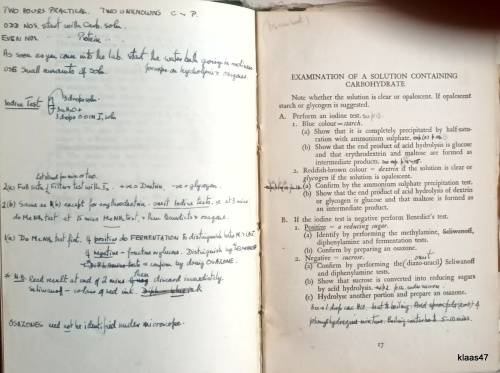 TWO HOURS PRACTICAL. TWO UNKNOWNS C + P.
ODD NOS. start with Carb. soln.
EVEN NOS. Protein
As soon as you come into the lab. start the water bath going in
USE small amounts of soln. for hydrolysis + osazone.
Iodine Test
3 drops soln.
3 drops 0.001 I₂ soln
Let stand for min or two.
2(a) Full satn / Filter + test with I₂ +ve = Dextrin. -ve = glycogen.
2(b) Same as 1(b) except for erythrodextrin - omit Iodine Tests, at 3 mins
do McNH₂ test at 15 mins McNH₂ test, then Benedict's + osazone.
1(a) Do McNH₂ test first. If positive do FERMENTATION to distinguish
If negative = fructose or glucose. Distinguish by SELIWANOFF
+ confirm by doing OSAZONE.
* N.B. Read result at end of 2 mins then discard immediately.
Seliwanoff - colour of red ink.
OSAZONES need not be identified under microscope.
EXAMINATION OF A SOLUTION CONTAINING
CARBOHYDRATE
Note whether the solution is clear or opalescent. If opalescent
starch or glycogen is suggested.
A. Perform an iodine test.
1. Blue colour = starch.
(a) Show that it is completely precipitated by half-satu-
ration with ammonium sulphate.
(b) Show that the end product of acid hydrolysis is glucose
and that erythrodextrin and maltose are formed as
intermediate products.
2. Reddish-brown colour = dextrin if the solution is clear or
glycogen if the solution is opalescent.
(a) Confirm by the ammonium sulphate precipitation test.
(b) Show that the end product of acid hydrolysis of dextrin
or glycogen is glucose and that maltose is formed as
an intermediate product.
B. If the iodine test is negative perform Benedict's test.
1. Positive = a reducing sugar.
(a) Identify by performing the methylamine, Seliwanoff,
diphenylamine and fermentation tests.
(b) Confirm by preparing an osazone.
2. Negative = sucrose. omit
(a) Confirm by performing the (diazo-uracil) Seliwanoff
and diphenylamine tests.
(b) Show that sucrose is converted into reducing sugars
by acid hydrolysis.
(c) Hydrolyse another portion and prepare an osazone.
phenylhydrazine mixture. Boiling water bath 5-10 mins.
17
klaas47